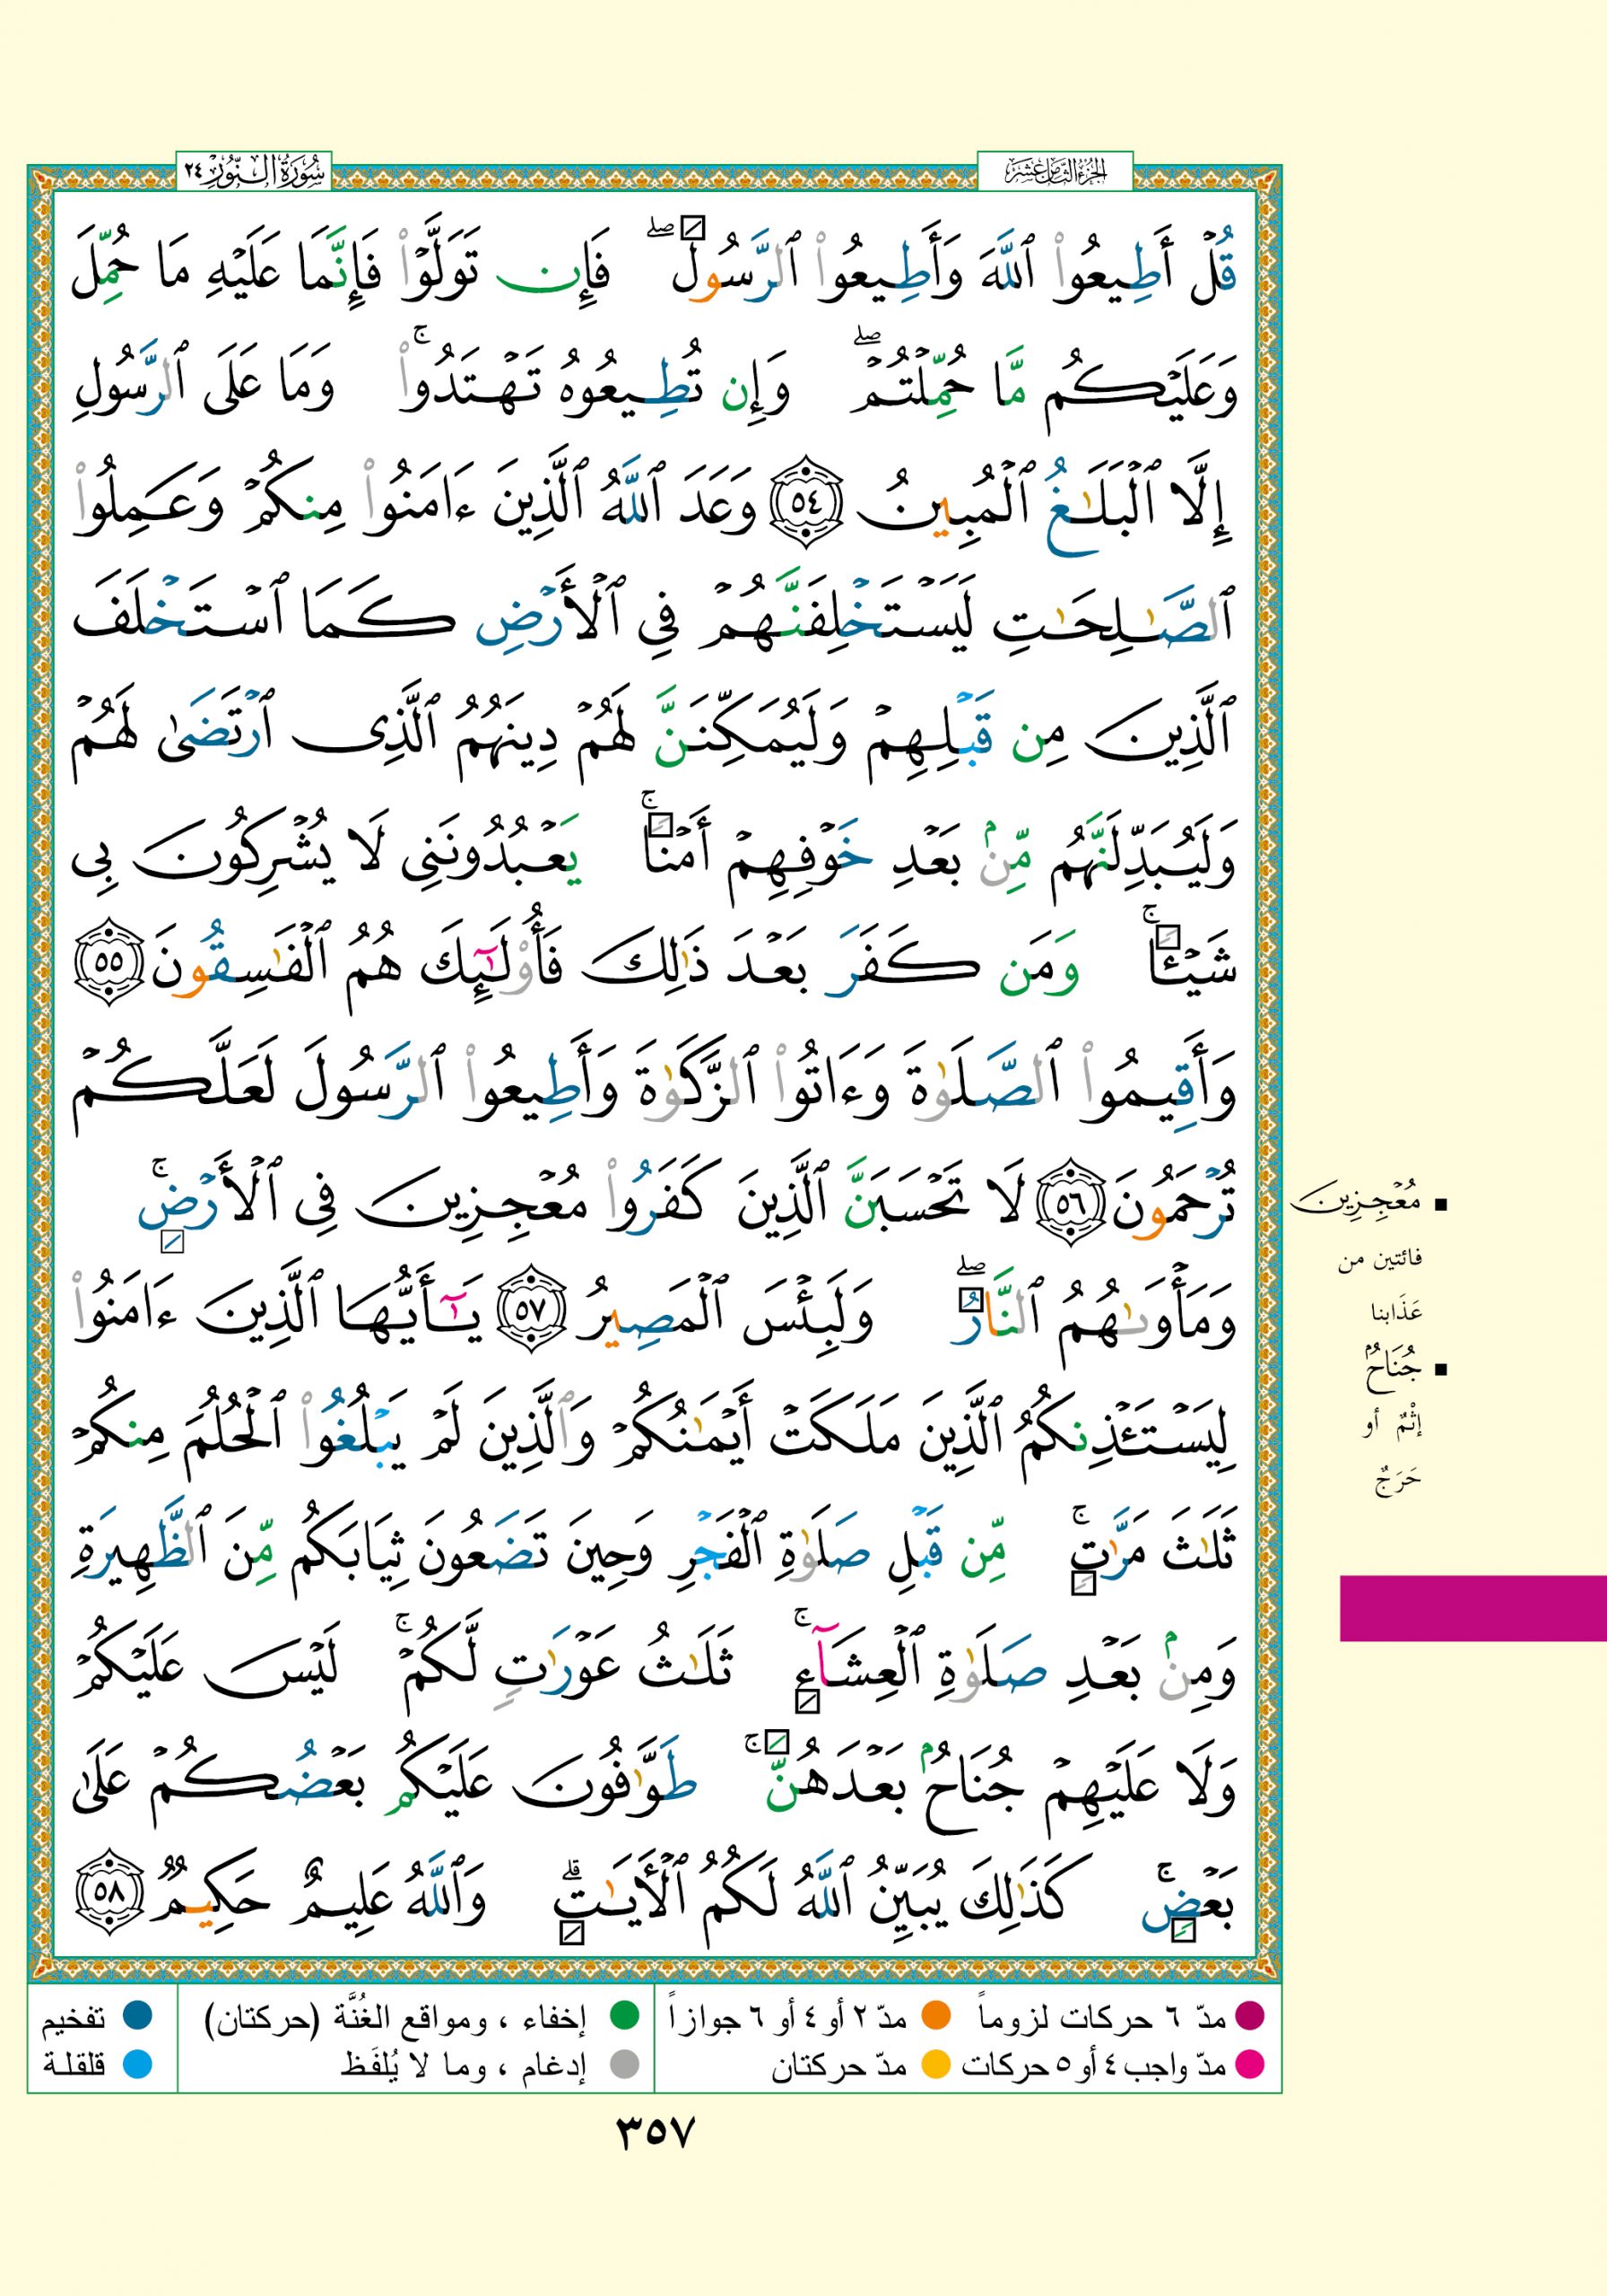 الجزء الثامن عشر
سورة النور ٢٤
قُلْ أَطِيعُوا۟ ٱللَّهَ وَأَطِيعُوا۟ ٱلرَّسُولَ ۖ فَإِن تَوَلَّوْا۟ فَإِنَّمَا عَلَيْهِ مَا حُمِّلَ
وَعَلَيْكُم مَّا حُمِّلْتُمْ ۖ وَإِن تُطِيعُوهُ تَهْتَدُوا۟ ۚ وَمَا عَلَى ٱلرَّسُولِ
إِلَّا ٱلْبَلَـٰغُ ٱلْمُبِينُ ٥٤ وَعَدَ ٱللَّهُ ٱلَّذِينَ ءَامَنُوا۟ مِنكُمْ وَعَمِلُوا۟
ٱلصَّـٰلِحَـٰتِ لَيَسْتَخْلِفَنَّهُمْ فِى ٱلْأَرْضِ كَمَا ٱسْتَخْلَفَ
ٱلَّذِينَ مِن قَبْلِهِمْ وَلَيُمَكِّنَنَّ لَهُمْ دِينَهُمُ ٱلَّذِى ٱرْتَضَىٰ لَهُمْ
وَلَيُبَدِّلَنَّهُم مِّنۢ بَعْدِ خَوْفِهِمْ أَمْنًا ۚ يَعْبُدُونَنِى لَا يُشْرِكُونَ بِى
شَيْـًٔا ۚ وَمَن كَفَرَ بَعْدَ ذَٰلِكَ فَأُو۟لَـٰٓئِكَ هُمُ ٱلْفَـٰسِقُونَ ٥٥
وَأَقِيمُوا۟ ٱلصَّلَوٰةَ وَءَاتُوا۟ ٱلزَّكَوٰةَ وَأَطِيعُوا۟ ٱلرَّسُولَ لَعَلَّكُمْ
تُرْحَمُونَ ٥٦ لَا تَحْسَبَنَّ ٱلَّذِينَ كَفَرُوا۟ مُعْجِزِينَ فِى ٱلْأَرْضِ ۚ
وَمَأْوَىٰهُمُ ٱلنَّارُ ۖ وَلَبِئْسَ ٱلْمَصِيرُ ٥٧ يَـٰٓأَيُّهَا ٱلَّذِينَ ءَامَنُوا۟
لِيَسْتَـْٔذِنكُمُ ٱلَّذِينَ مَلَكَتْ أَيْمَـٰنُكُمْ وَٱلَّذِينَ لَمْ يَبْلُغُوا۟ ٱلْحُلُمَ مِنكُمْ
ثَلَـٰثَ مَرَّٰتٍ ۚ مِّن قَبْلِ صَلَوٰةِ ٱلْفَجْرِ وَحِينَ تَضَعُونَ ثِيَابَكُم مِّنَ ٱلظَّهِيرَةِ
وَمِنۢ بَعْدِ صَلَوٰةِ ٱلْعِشَآءِ ۚ ثَلَـٰثُ عَوْرَٰتٍ لَّكُمْ ۚ لَيْسَ عَلَيْكُمْ
وَلَا عَلَيْهِمْ جُنَاحٌۢ بَعْدَهُنَّ ۚ طَوَّٰفُونَ عَلَيْكُم بَعْضُكُمْ عَلَىٰ
بَعْضٍ ۚ كَذَٰلِكَ يُبَيِّنُ ٱللَّهُ لَكُمُ ٱلْـَٔايَـٰتِ ۗ وَٱللَّهُ عَلِيمٌ حَكِيمٌ ٥٨
▪ مُعْجِزِينَ
فائتين من
عَذَابنا
▪ جُنَاحٌۢ
إثْمٌ أو
حَرَجٌ
مدّ ٦ حركات لزوماً مدّ ٢ أو ٤ أو ٦ جوازاً إخفاء ، ومواقع الغُنَّة (حركتان) تفخيم
مدّ واجب ٤ أو ٥ حركات مدّ حركتان إدغام ، وما لا يُلفَظ قلقلة
٣٥٧